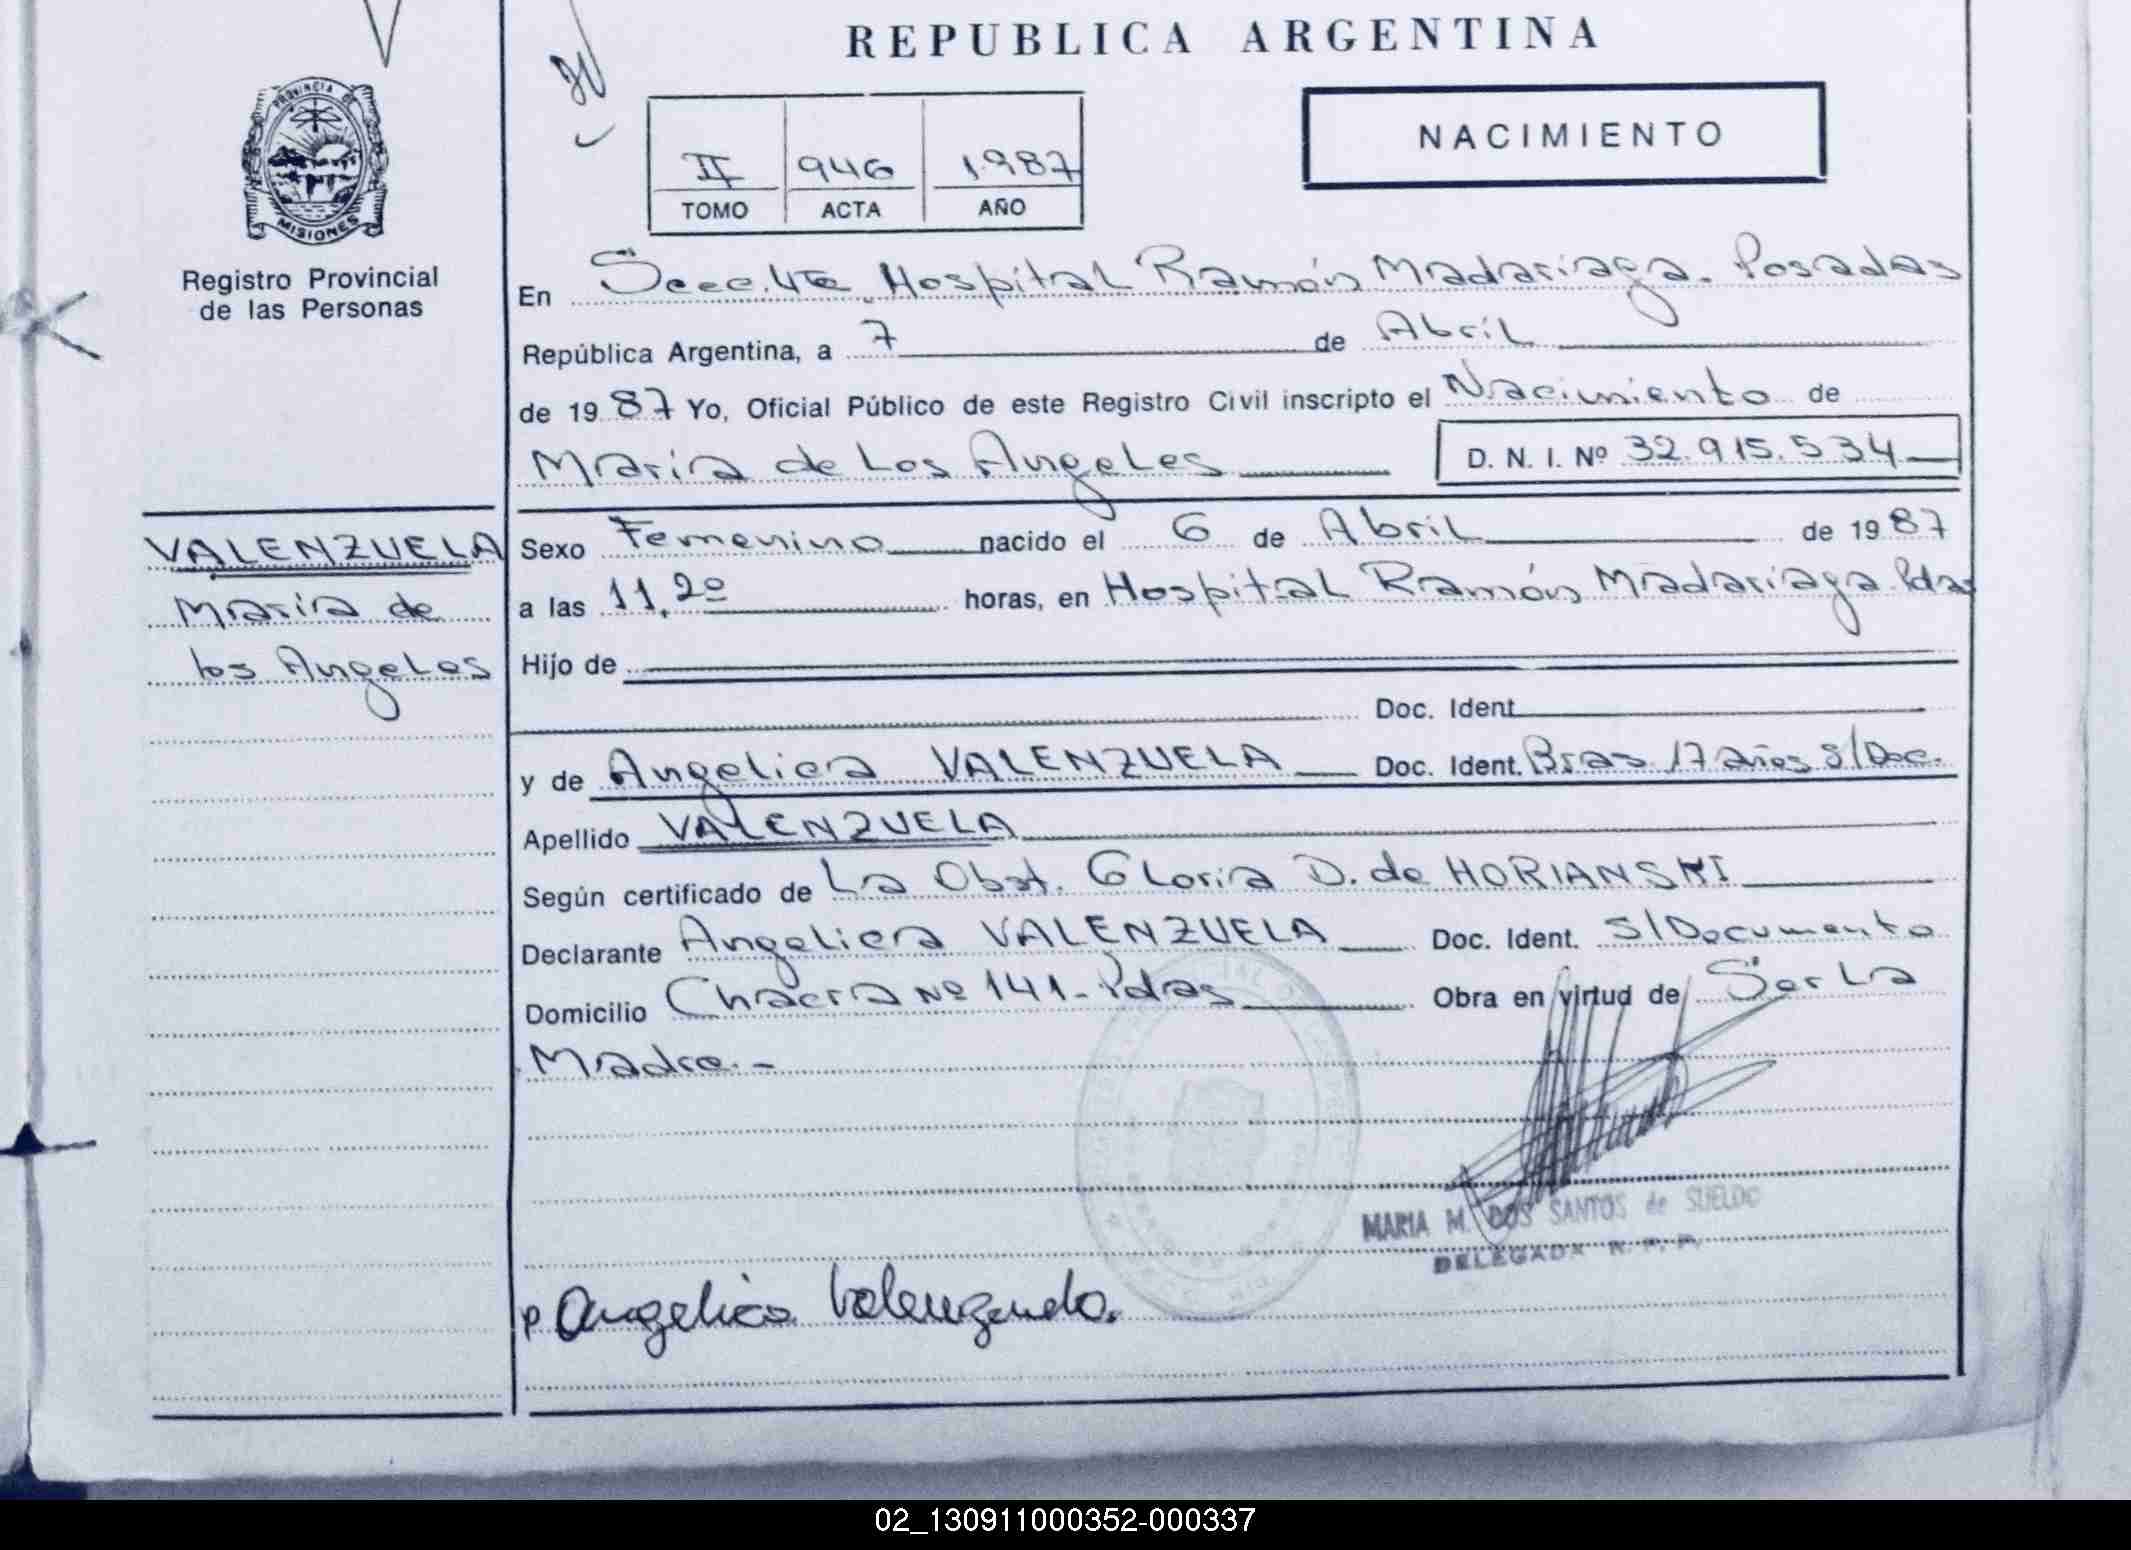 REPUBLICA ARGENTINA
PROVINCIA DE
MISIONES
Registro Provincial
de las Personas
II 946 1987
TOMO ACTA AÑO
NACIMIENTO
En Secc. 4ta. Hospital Ramón Madariaga. Posadas
República Argentina, a 7 de Abril
de 1987 Yo, Oficial Público de este Registro Civil inscripto el Nacimiento de
María de Los Angeles D. N. I. Nº 32.915.534
VALENZUELA
María de
los Angeles
Sexo Femenino nacido el 6 de Abril de 1987
a las 11,20 horas, en Hospital Ramón Madariaga. Pdas
Hijo de
Doc. Ident.
y de Angelica VALENZUELA Doc. Ident. Bras 17 años S/Doc.
Apellido VALENZUELA
Según certificado de La Obst. Gloria D. de HORIANSKI
Declarante Angelica VALENZUELA Doc. Ident. S/Documento
Domicilio Chacra Nº 141-Pdas Obra en virtud de Ser La
Madre.-
MARIA M. DOS SANTOS de SUELDO
DELEGADA R. P. P.
p Angelica Valenzuela.
02_130911000352-000337